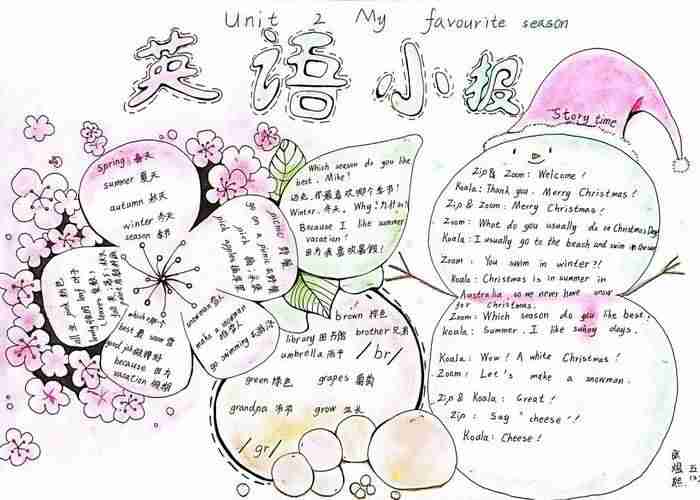 Unit 2 My favourite season
英语小报
spring 春天
summer 夏天
autumn 秋天
winter 冬天
season 季节
picnic 野餐
go on a picnic 去野餐
pick 摘；采集
pick apples 摘苹果
snowman 雪人
make a snowman
堆雪人
go swimming 去游泳
which 哪个
best 最
snow 雪
good job 做得好
because 因为
vacation 假期
all 全
pink 粉色
lovely
leaf 叶子
fall
paint
Which season do you like
best, Mike?
Winter. 冬天. Why?
Because I like summer
vacation!
因为我喜欢暑假!
brown 棕色
library 图书馆 brother 兄弟
umbrella 雨伞 /br/
green 绿色 grapes 葡萄
grandpa 爷爷 grow 生长
/gr/
Story time
Zip & Zoom: Welcome!
Koala: Thank you. Merry Christmas!
Zip & Zoom: Merry Christmas!
Zoom: What do you usually do on Christmas Day
Koala: I usually go to the beach and swim in the sea
Zoom: You swim in winter?!
Koala: Christmas is in summer in
Australia, so we never have snow
for Christmas.
Zoom: Which season do you like best?
koala: Summer. I like sunny days.
Koala: Wow! A white Christmas!
Zoom: Let's make a snowman.
Zip & Koala: Great!
Zip: Say "cheese"!
Koala: Cheese!